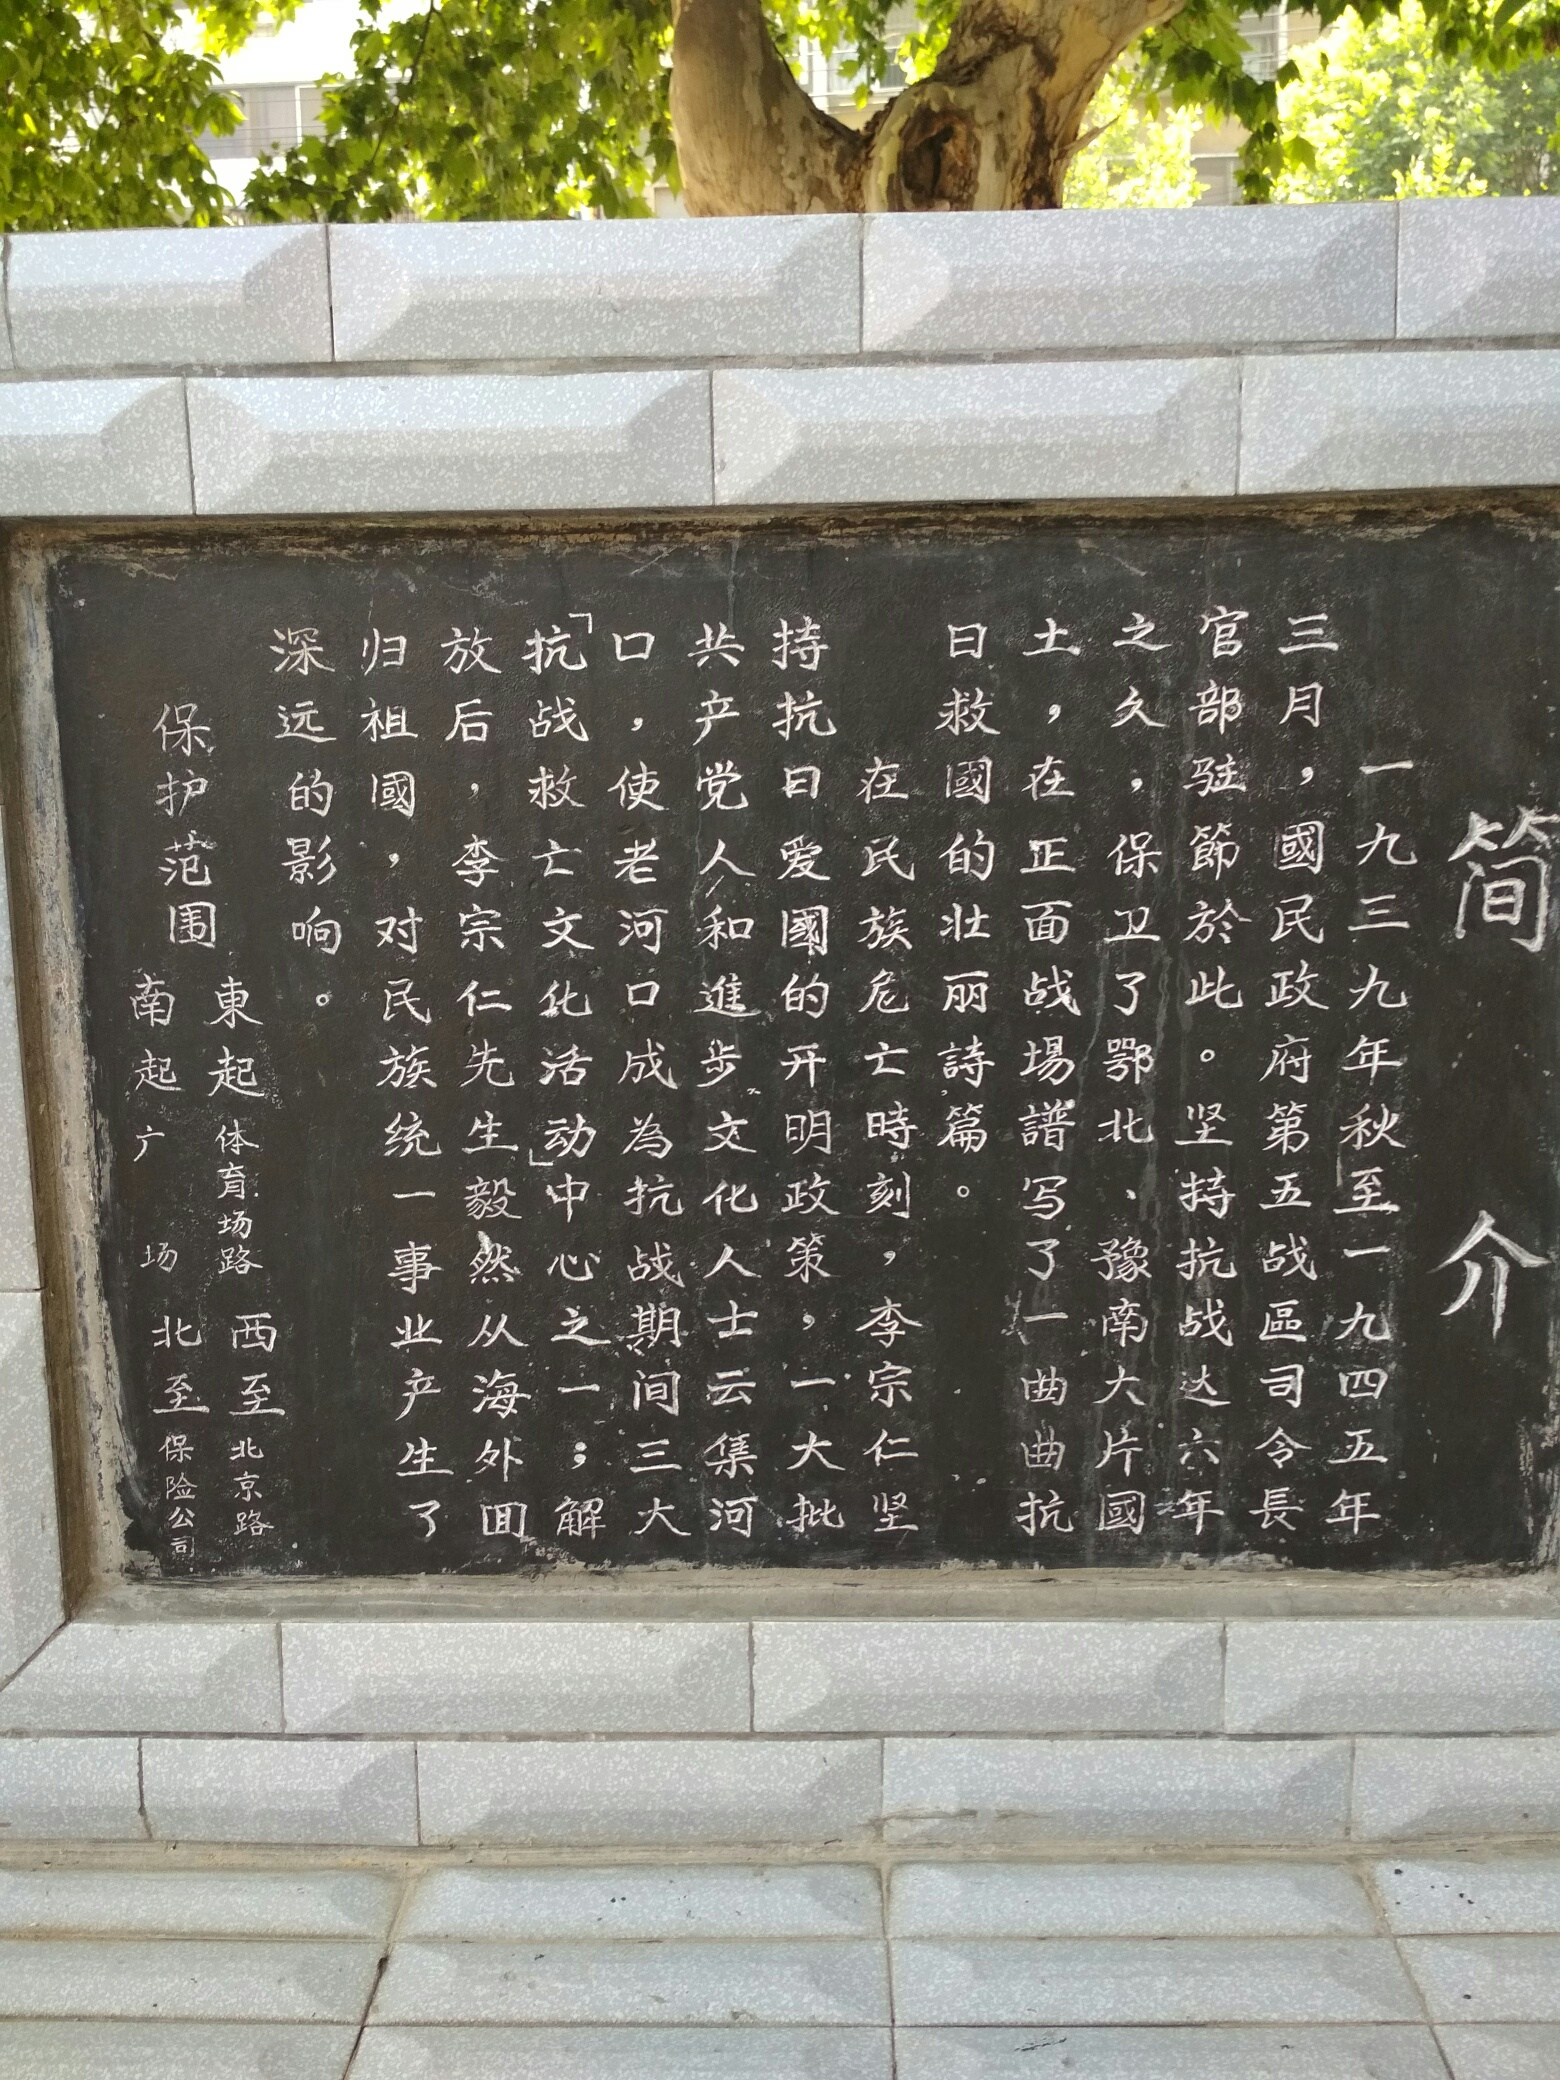 简介
一九三九年秋至一九四五年
三月，國民政府第五战區司令長
官部驻節於此。坚持抗战达六年
之久，保卫了鄂北、豫南大片國
土，在正面战場譜写了一曲曲抗
日救國的壮丽詩篇。
在民族危亡時刻，李宗仁坚
持抗日爱國的开明政策，一大批
共产党人和進步文化人士云集河
口，使老河口成為抗战期间三大
「抗战救亡文化活动」中心之一；解
放后，李宗仁先生毅然从海外囬
归祖國，对民族统一事业产生了
深远的影响。
保护范围
東起体育场路 西至北京路
南起广场 北至保险公司